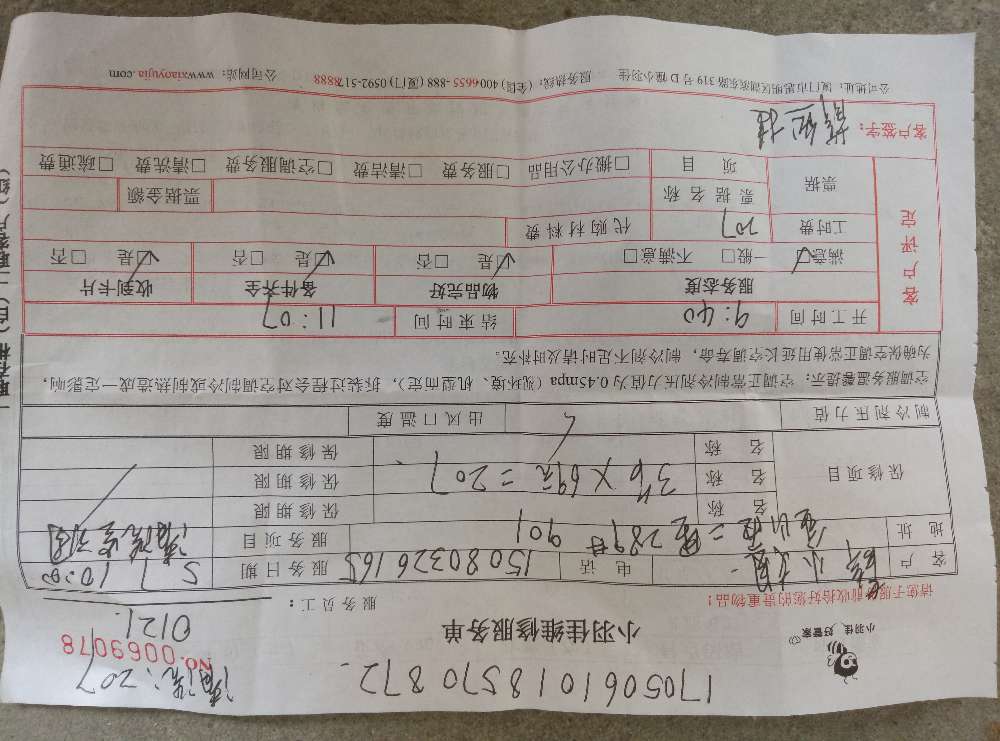 1705061018570872
清洗:207
小羽佳 好管家
小羽佳维修服务单
No.0069078
请您于服务前收拾好您的贵重物品!
服务员工:
0121
客户
小姐
电话
15080326165
服务日期
5 7 10:00
地址
289# 901
服务项目
清洗空调
保修项目
名称
保修期限
名称
3台×69元=207
保修期限
名称
保修期限
制冷剂压力值
出风口温度
空调服务温馨提示:空调正常制冷剂压力值为0.45mpa(视环境、机型而定),拆装过程会对空调制冷或制热造成一定影响,
为确保空调正常使用延长空调寿命,制冷剂不足时请及时补充。
开工时间
9:40
结束时间
11:07
客户评定
服务态度
物品完好
备件齐全
收到卡片
满意☑ 一般□ 不满意□
☑是 □否
☑是 □否
☑是 □否
工时费
207
代购材料费
票据
票据名称
票据金额
项目
□搬办公用品 □服务费 □清洁费 □空调服务费 □清洗费 □疏通费
客户签字:
公司地址:厦门市思明区湖滨东路319号D幢小羽佳 服务热线:(全国)400-6655-888 (厦门)0592-5178888 公司网站:www.xiaoyujia.com